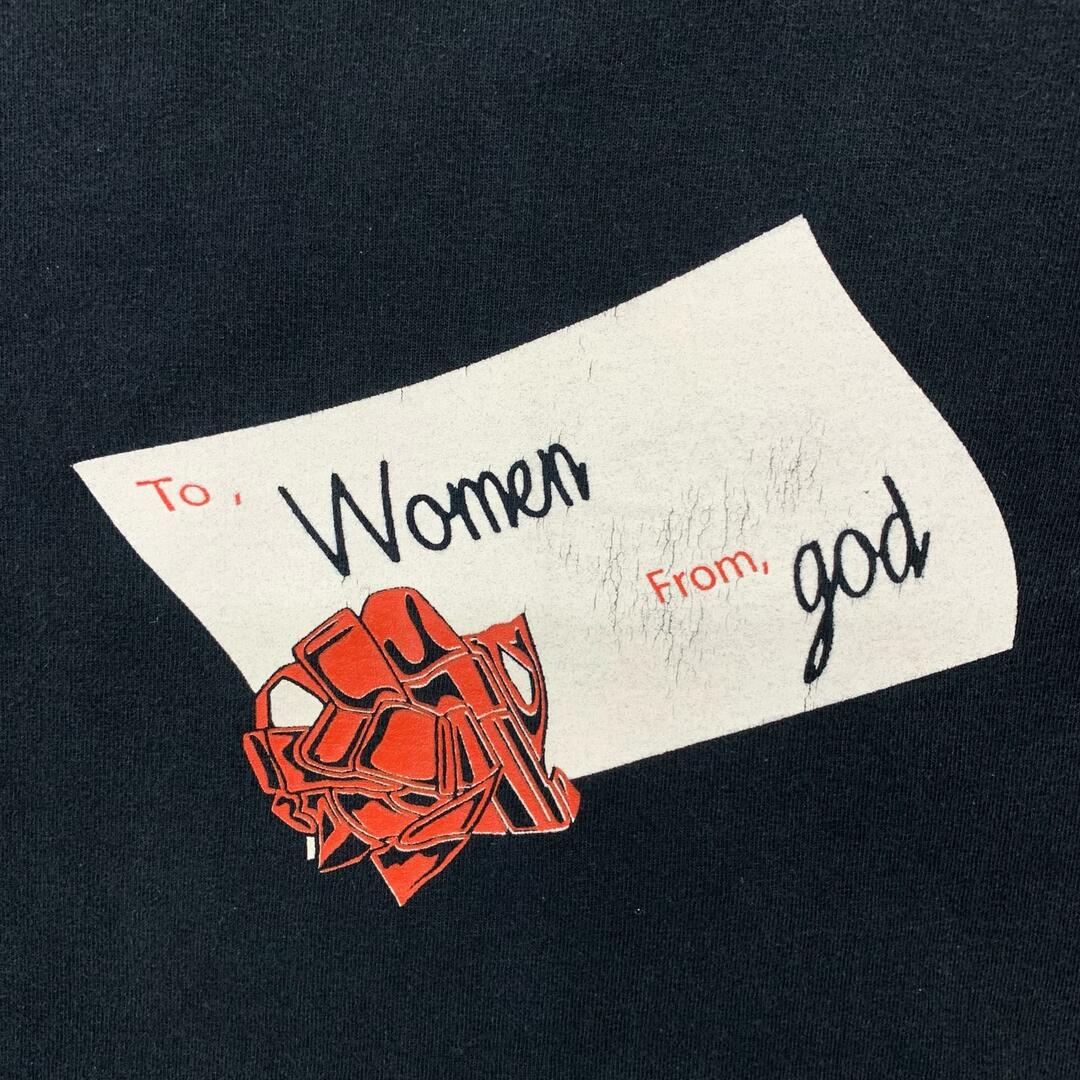 To, Women
From, god